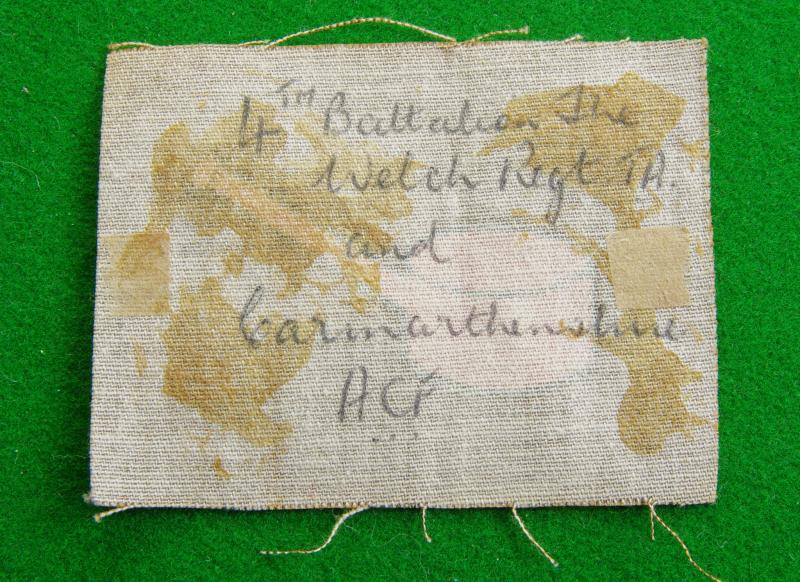 4TH Battalion The
Welch Regt TA.
and
Carmarthenshire
ACF